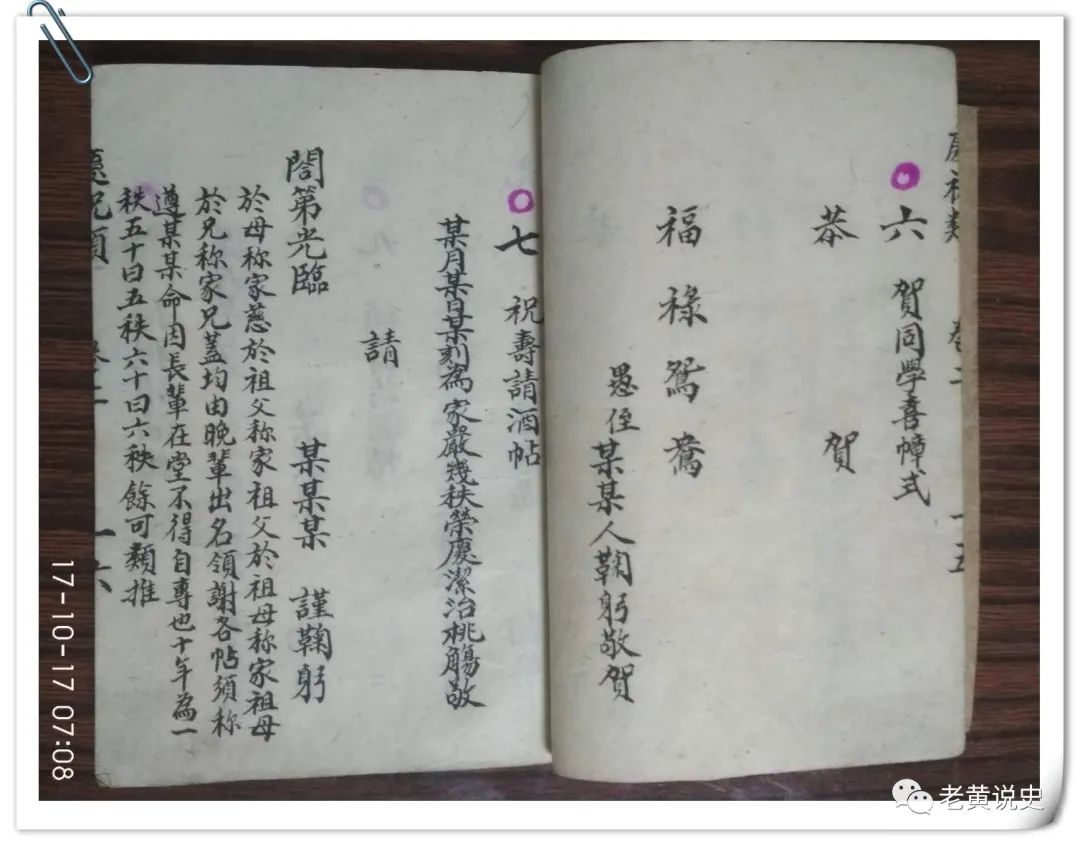 六 賀同學喜幛式
恭 賀
福祿鴛鴦
愚侄某某人鞠躬敬賀
七 祝壽請酒帖
某月某日某刻為家嚴幾秩榮慶潔治桃觴敬
請
閤第光臨 某某某 謹鞠躬
於母称家慈於祖父称家祖父於祖母称家祖母
於兄称家兄蓋均由晚輩出名領謝各帖須称
遵某某命因長輩在堂不得自專也十年為一
秩五十曰五秩六十曰六秩餘可類推
一六
17-10-17 07:08
老黄说史